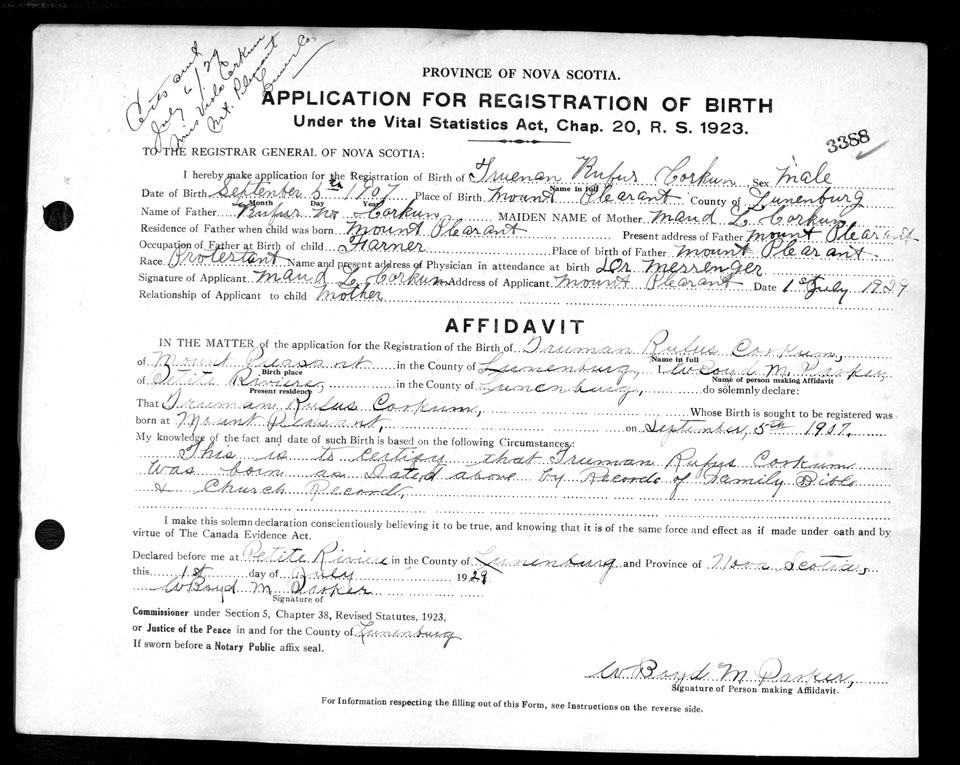 Cert's sent
July 6/29
Miss Viola Corkum
Mt. Pleasant
Lunen Co.
PROVINCE OF NOVA SCOTIA.
APPLICATION FOR REGISTRATION OF BIRTH
Under the Vital Statistics Act, Chap. 20, R. S. 1923.
3388
TO THE REGISTRAR GENERAL OF NOVA SCOTIA:
I hereby make application for the Registration of Birth of Trueman Rufus Corkum Sex Male
Name in full
Date of Birth September 5th 1907 Place of Birth Mount Pleasant County of Lunenburg
Month Day Year
Name of Father Rufus W. Corkum MAIDEN NAME of Mother Maud L. Corkum
Residence of Father when child was born Mount Pleasant Present address of Father Mount Pleasant
Occupation of Father at Birth of child Farmer Place of birth of Father Mount Pleasant
Race Protestant Name and present address of Physician in attendance at birth Dr Messenger
Signature of Applicant Maud L. Corkum Address of Applicant Mount Pleasant Date 1st July 1929
Relationship of Applicant to child Mother
AFFIDAVIT
IN THE MATTER of the application for the Registration of the Birth of Truman Rufus Corkum,
Name in full
of Mount Pleasant in the County of Lunenburg, I, W Boyd M. Parker,
Birth place Name of person making Affidavit
of Petite Riviere, in the County of Lunenburg, do solemnly declare:
Present residence
That Truman Rufus Corkum, Whose Birth is sought to be registered was
born at Mount Pleasant, on September, 5th 1907.
My knowledge of the fact and date of such Birth is based on the following Circumstances:
This is to certify that Truman Rufus Corkum
was born as Dated above by Records of Family Bible
& Church Record,
I make this solemn declaration conscientiously believing it to be true, and knowing that it is of the same force and effect as if made under oath and by
virtue of The Canada Evidence Act.
Declared before me at Petite Riviere in the County of Lunenburg and Province of Nova Scotia,
this 1st day of July 1929
W Boyd M Parker
Signature of
Commissioner under Section 5, Chapter 38, Revised Statutes, 1923,
or Justice of the Peace in and for the County of Lunenburg
If sworn before a Notary Public affix seal.
W Boyd M Parker,
Signature of Person making Affiidavit.
For Information respecting the filling out of this Form, see Instructions on the reverse side.